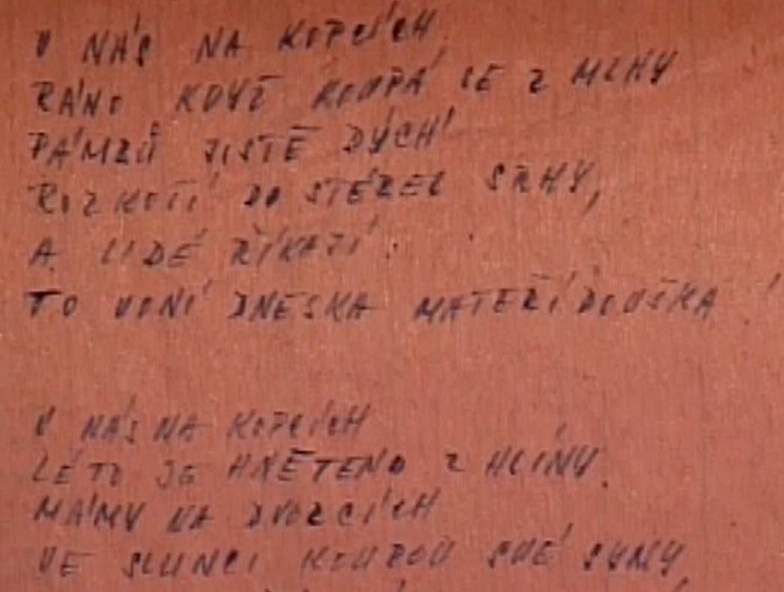 U NÁS NA KOPCÍCH
RÁNO KDYŽ KOUPÁ SE Z MLHY
JISTĚ DÝCHÁ
DO STÉBEL SRHY,
A LIDÉ ŘÍKAJÍ:
TO VONÍ DNESKA MATEŘÍDOUŠKA!
U NÁS NA KOPCÍCH
LÉTO JE HNĚTENO Z HLÍNY.
MÁMY NA DVORCÍCH
VE SLUNCI KOUPOU SVÉ SYNY